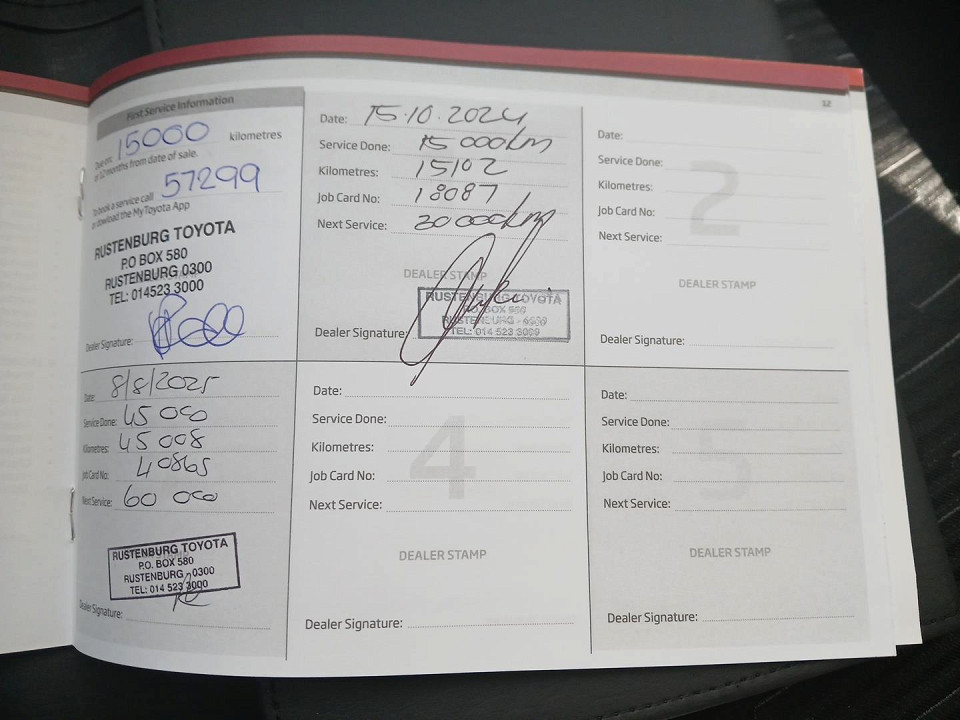 12
First Service Information
Due on: 15000 kilometres
or 12 months from date of sale.
To book a service call 57299
or download the MyToyota App
RUSTENBURG TOYOTA
P.O BOX 580
RUSTENBURG 0300
TEL: 014523 3000
Dealer Signature:
Date: 15.10.2024
Service Done: 15 000km
Kilometres: 15102
Job Card No: 18087
Next Service: 30 000km
DEALER STAMP
RUSTENBURG TOYOTA
P.O. BOX 580
TEL: 014 523 3000
Dealer Signature:
2
Date:
Service Done:
Kilometres:
Job Card No:
Next Service:
DEALER STAMP
Dealer Signature:
Date: 8/8/2025
Service Done: 45 000
Kilometres: 45 008
Job Card No: 40865
Next Service: 60 000
RUSTENBURG TOYOTA
P.O. BOX 580
RUSTENBURG, 0300
TEL: 014 523 3000
Dealer Signature:
4
Date:
Service Done:
Kilometres:
Job Card No:
Next Service:
DEALER STAMP
Dealer Signature:
5
Date:
Service Done:
Kilometres:
Job Card No:
Next Service:
DEALER STAMP
Dealer Signature: